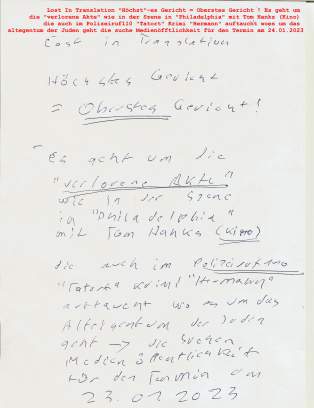 Lost In Translation "Höchst"-es Gericht = Oberstes Gericht ! Es geht um
die "verlorene Akte" wie in der Szene in "Philadelphia" mit Tom Hanks (Kino)
die auch im Polizeiruf110 "Tatort" Krimi "Hermann" auftaucht woes um das
alteigentum der Juden geht die suche Medienöffltlichkeit für den Termin am 24.01.2023
Lost in Translation
Höchstes Gericht
= Oberstes Gericht!
Es geht um die
"verlorene Akte"
wie in der Szene
in "Philadelphia"
mit Tom Hanks (Kino)
die auch im Polizeiruf110
"Tatort" Krimi "Hermann"
auftaucht wo es um das
Alteigentum der Juden
geht → die suchen
Medienöffentlichkeit
für den Termin am
23.01.2023